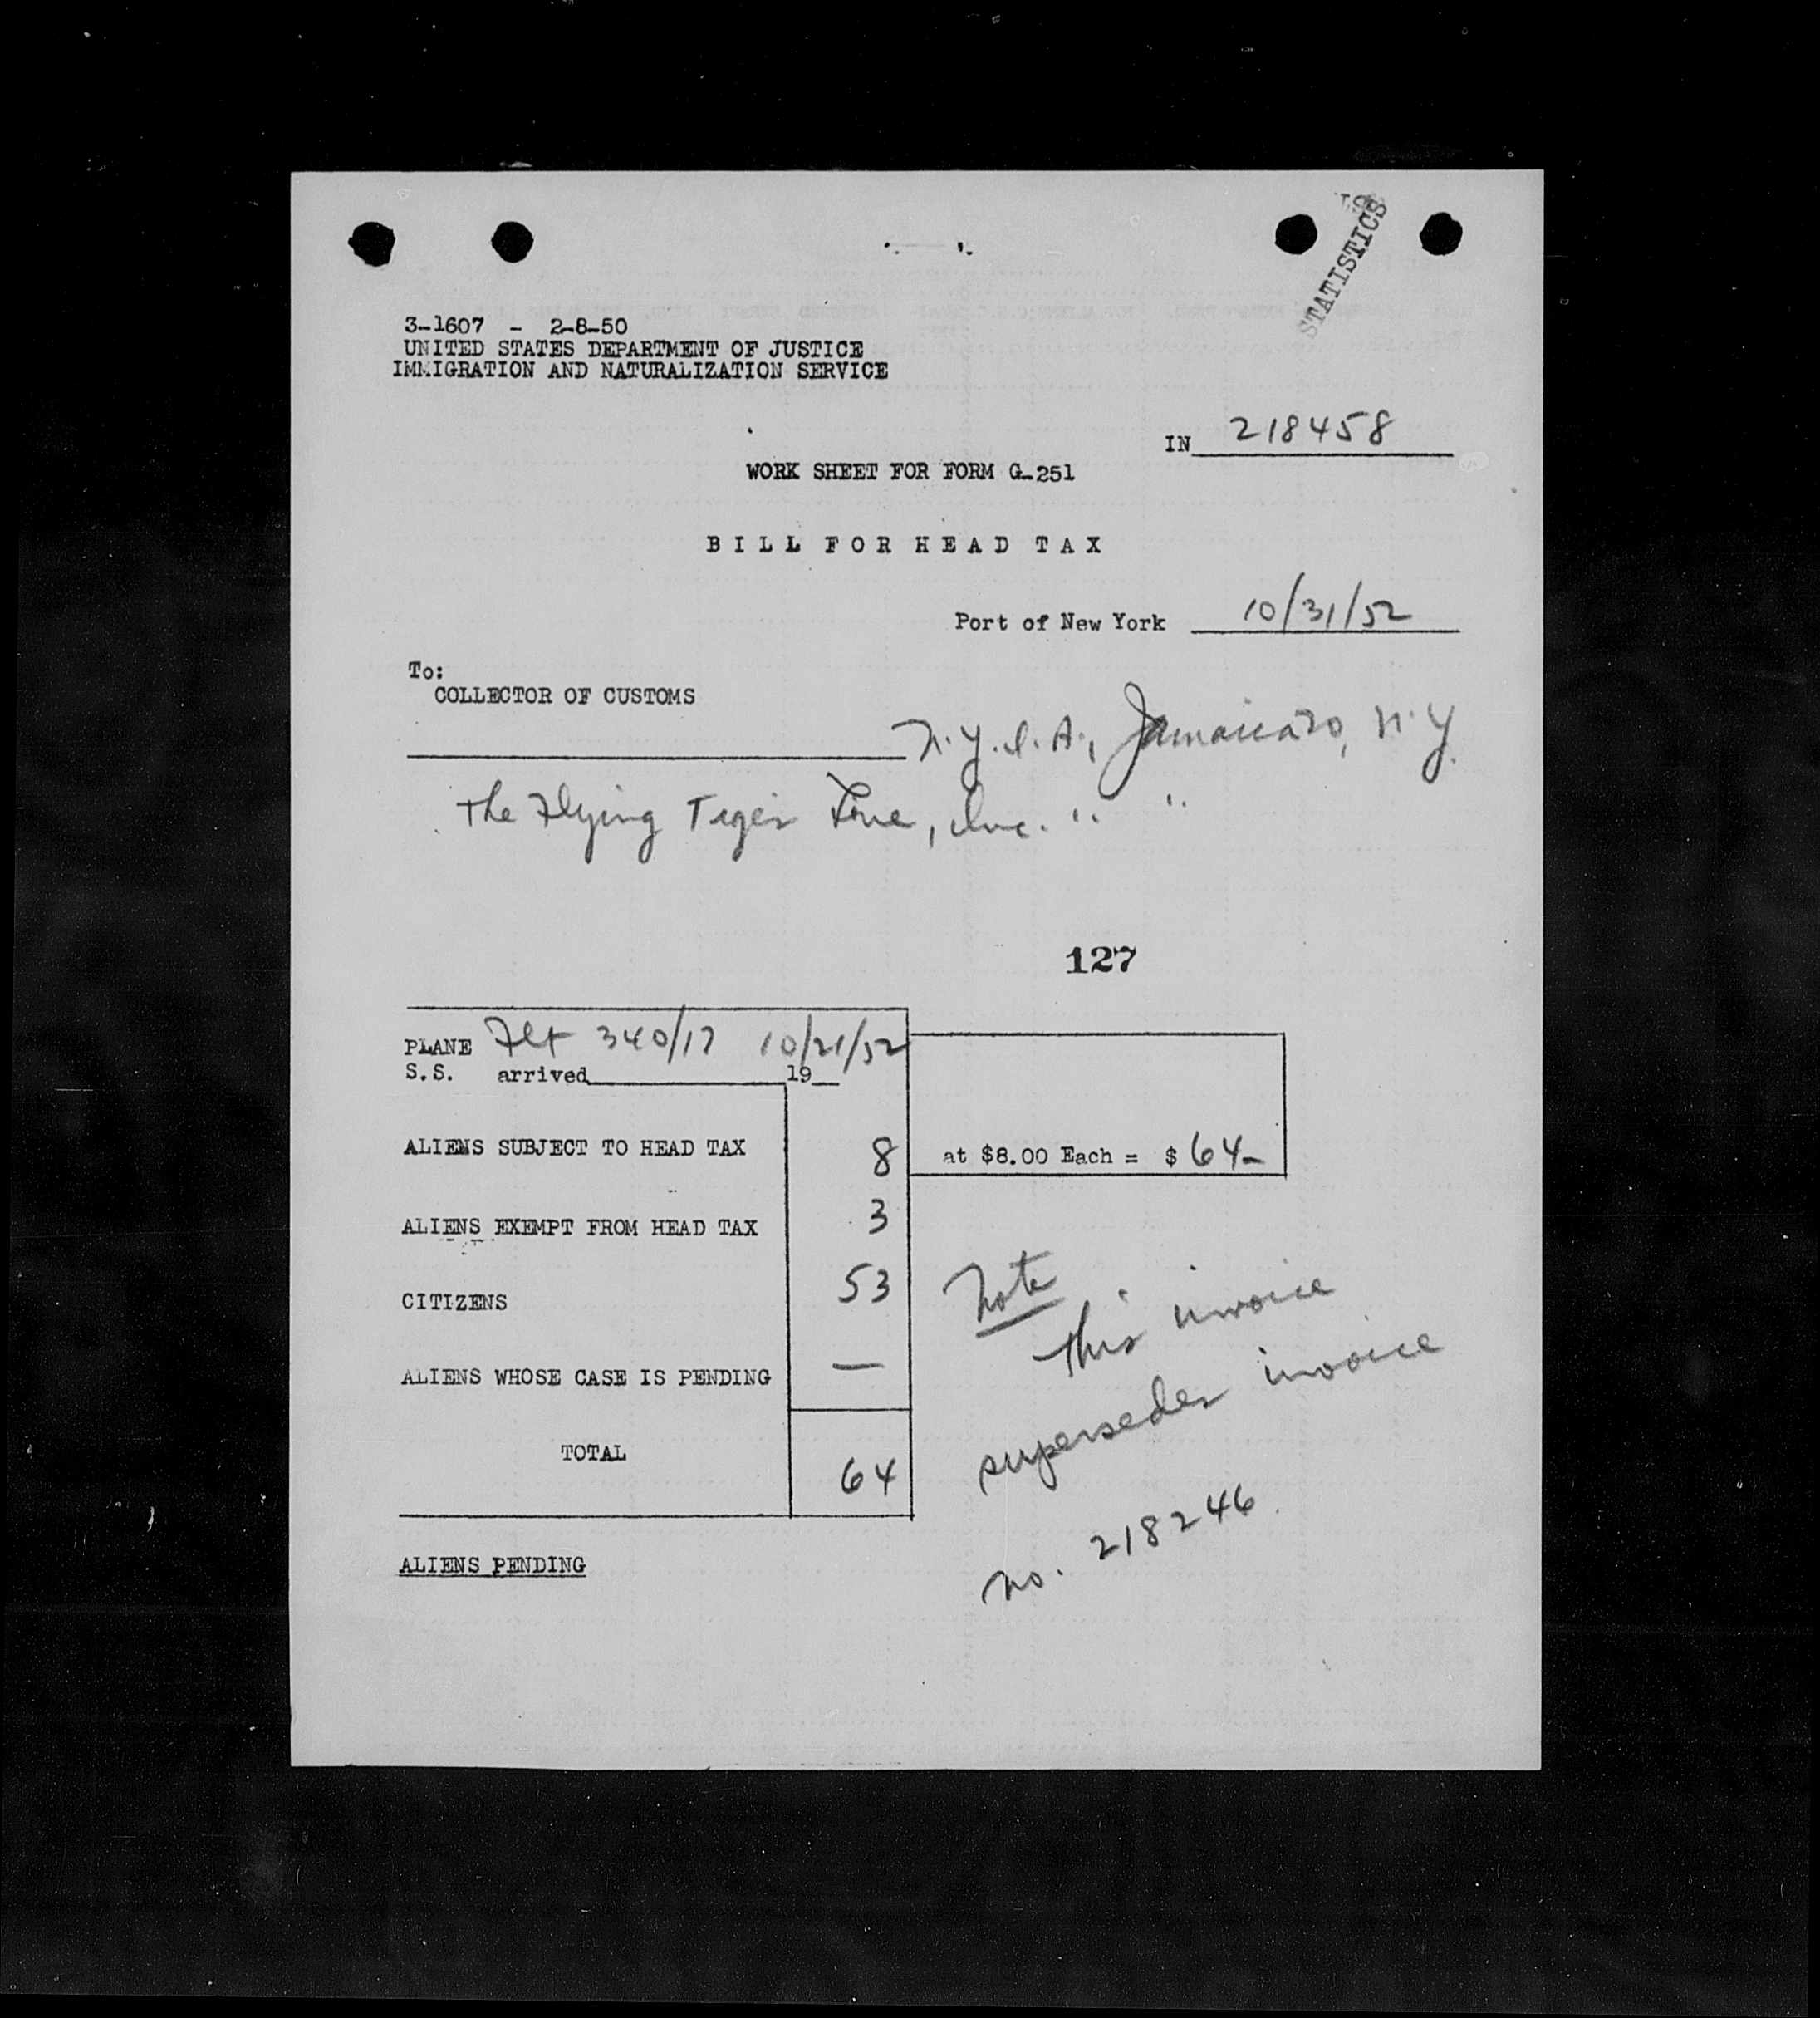 STATISTICS
3-1607 - 2-8-50
UNITED STATES DEPARTMENT OF JUSTICE
IMMIGRATION AND NATURALIZATION SERVICE
IN 218458
WORK SHEET FOR FORM G-251
BILL FOR HEAD TAX
Port of New York 10/31/52
To:
COLLECTOR OF CUSTOMS
N.Y.I.A., Jamaica 30, N.Y.
The Flying Tiger Line, Inc. " "
127
PLANE Flt 340/17 10/21/52
S.S. arrived 19
ALIENS SUBJECT TO HEAD TAX 8 at $8.00 Each = $ 64-
ALIENS EXEMPT FROM HEAD TAX 3
CITIZENS 53
ALIENS WHOSE CASE IS PENDING —
TOTAL 64
Note
This invoice
supersedes invoice
no. 218246.
ALIENS PENDING